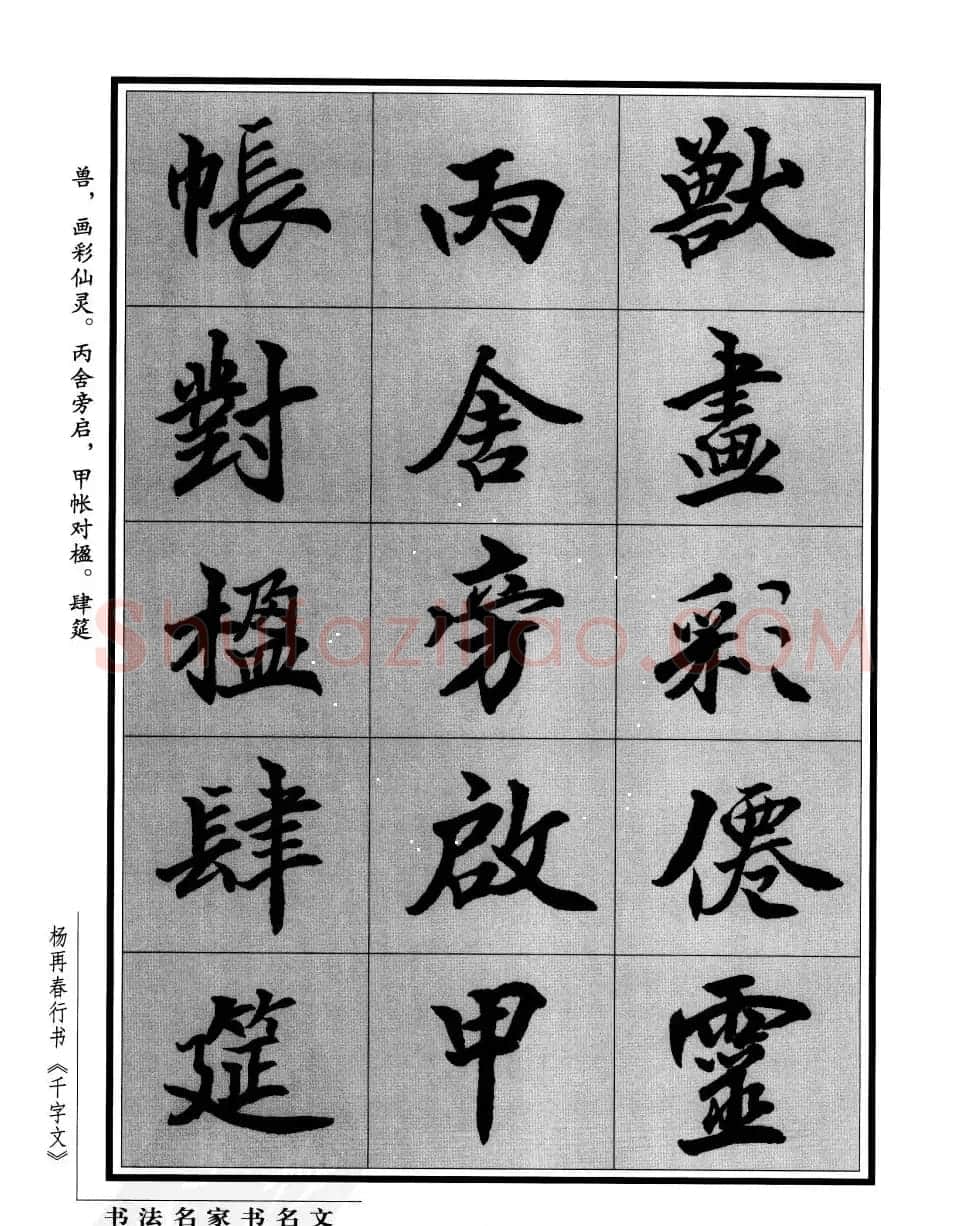 獸畫彩僊靈
丙舍旁啟甲
帳對楹肆筵
兽，画彩仙灵。丙舍旁启，甲帐对楹。肆筵
杨再春行书《千字文》
书法名家书名文
Shufaziliao.COM